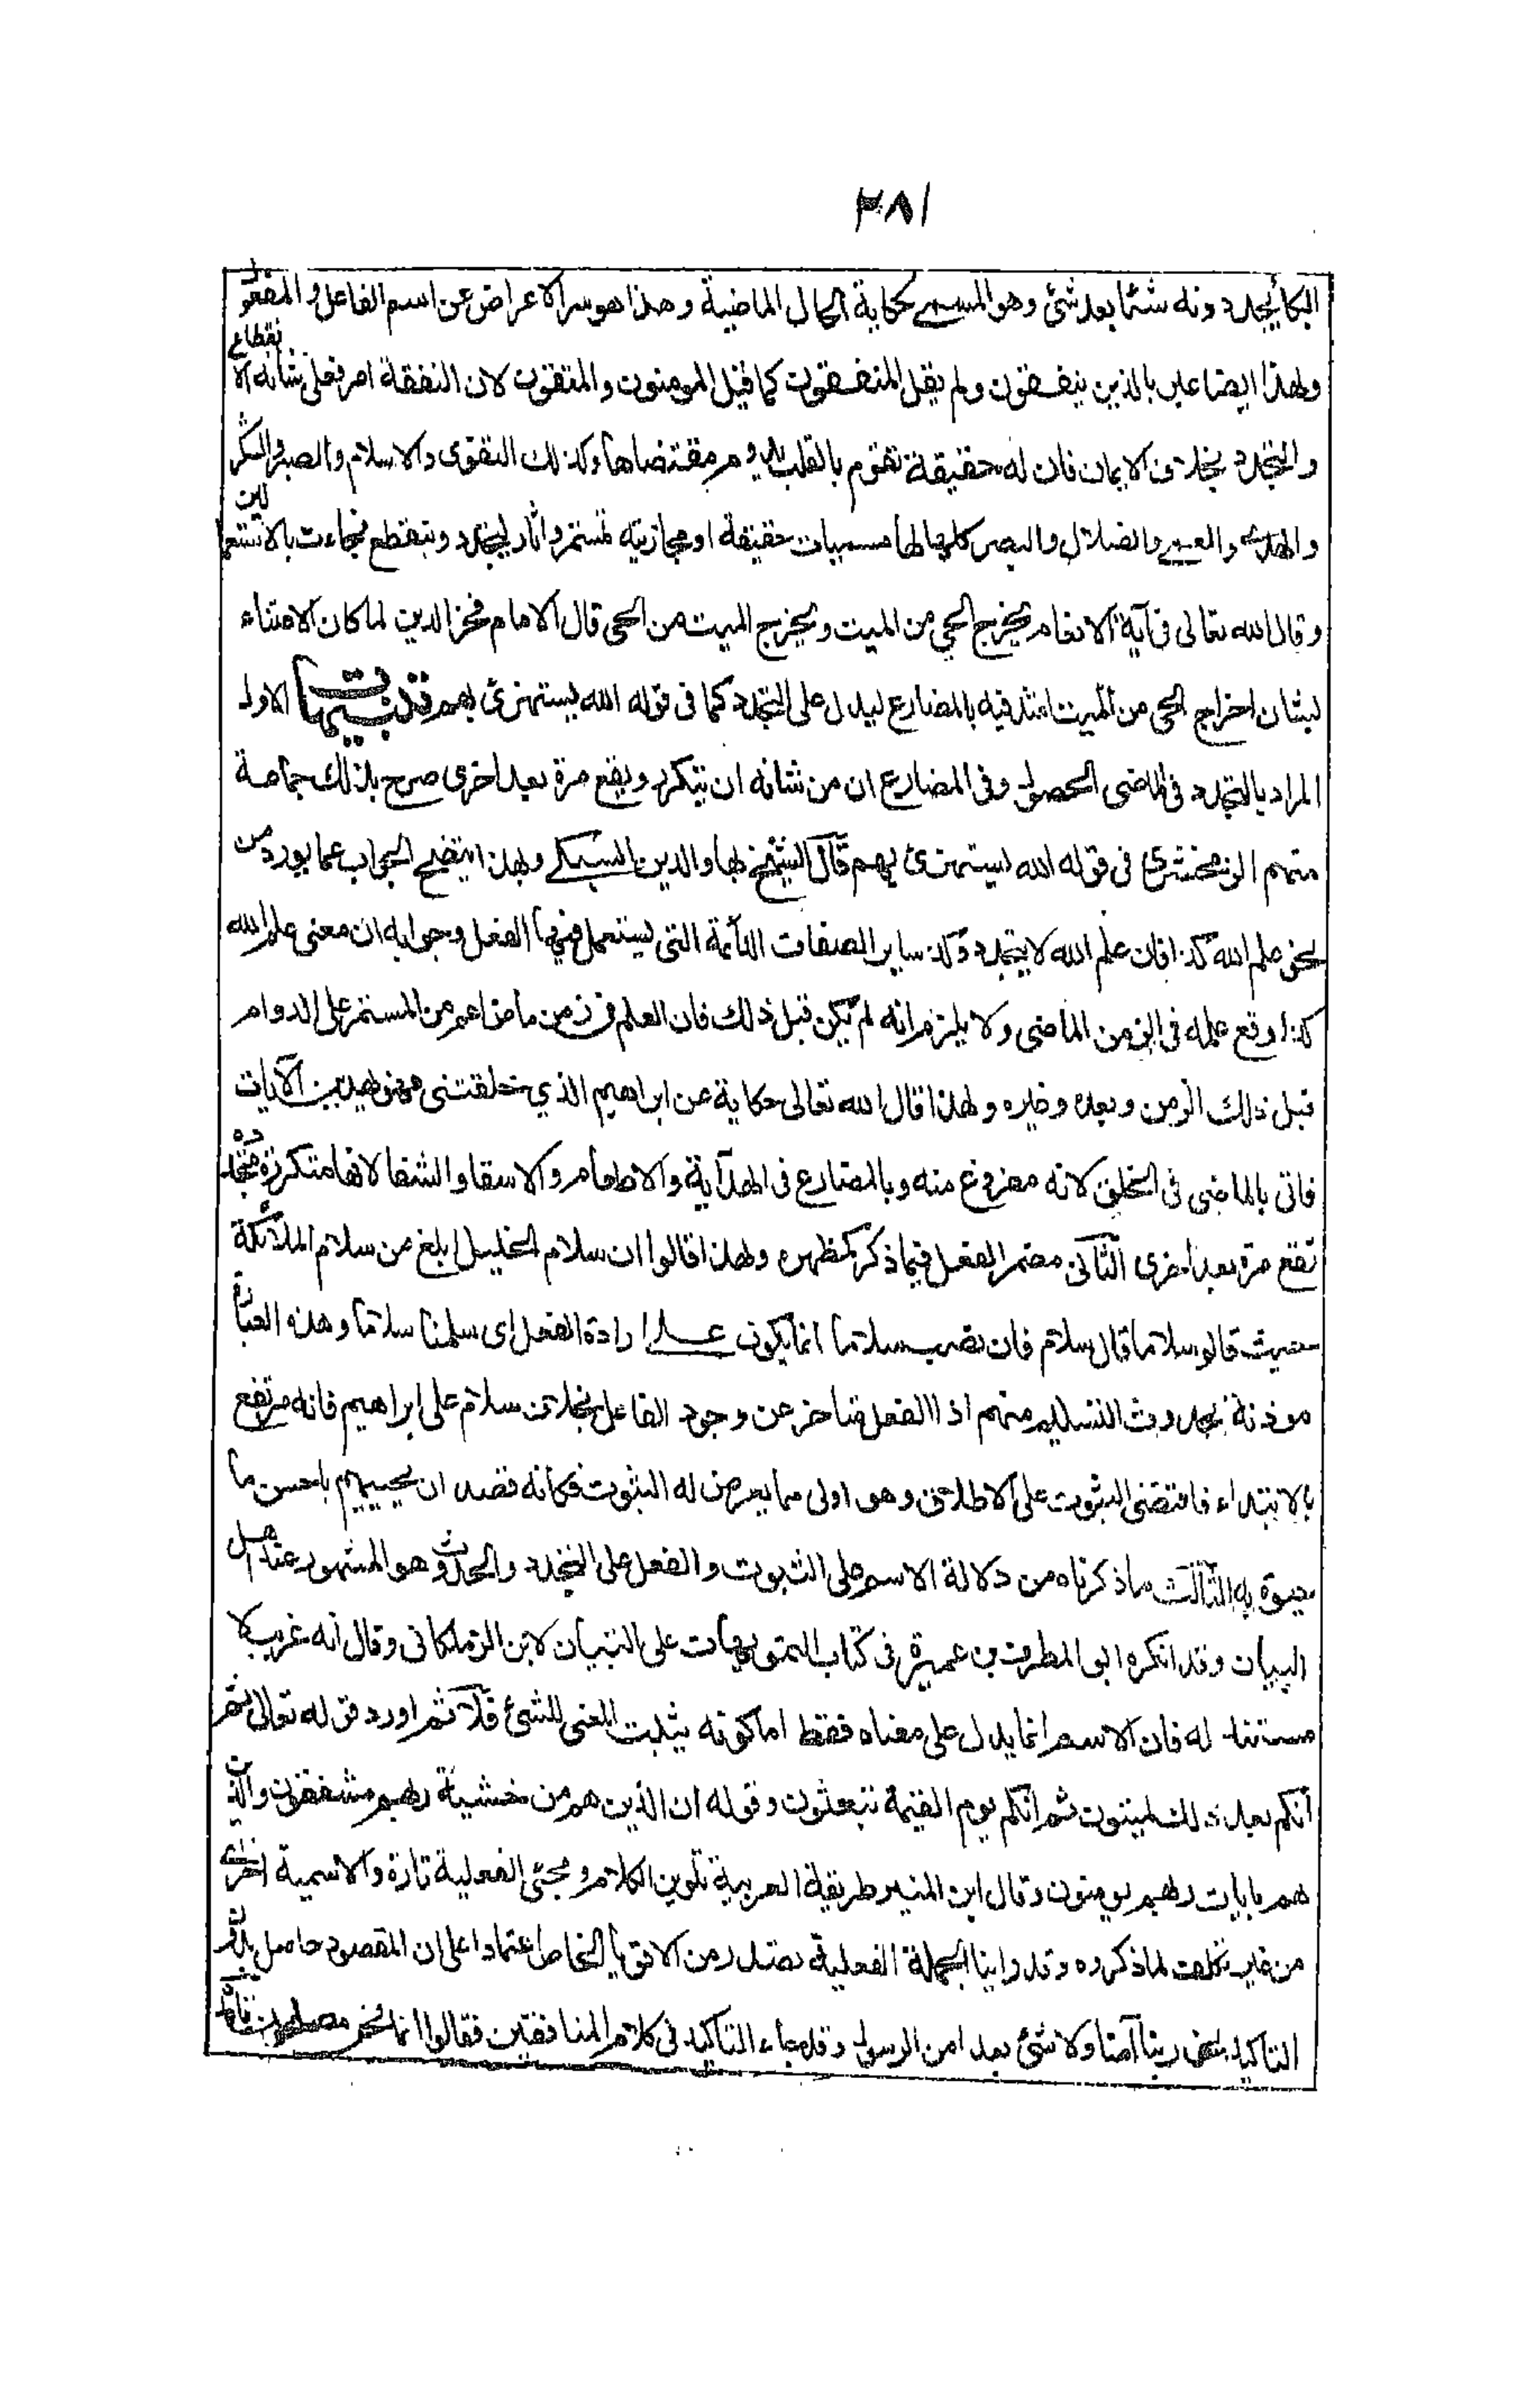 ٢٨١
البكا يجددونه شئا بعد شئ وهو المسمى حكاية الحال الماضية وهذا هو سر الاعراض عن اسم الفاعل والمفعو
ولهذا ايضا عبر بالذين ينفقون ولم يقل المنفقون كما قيل المومنون والمتقون لان النفقة امر فعلى شانه الا نقطاع
والتجدد بخلاف الايمان فان له حقيقة تقوم بالقلب يدوم مقتضاها وكذلك التقوى والاسلام والصبر والشكر
والهدى والعمى والضلال والبصر كلها لها مسميات حقيقة او مجازية تستمر واثار تتجدد وتنقطع فجاءت بالاستعما لين
وقال الله تعالى فى آية الانعام يخرج الحى من الميت ويخرج الميت من الحى قال الامام فخر الدين لما كان الاعتناء
لبشان اخراج الحى من الميت اشد فيه بالمضارع ليدل على التجدد كما فى قوله الله يستهزئ بهم تنبيهات الاول
المراد بالتجدد فى الماضى الحصول وفى المضارع ان من شانه ان يتكرر ويقع مرة بعد اخرى صرح بذلك جماعة
منهم الزمخشرى فى قوله الله يستهزئ بهم قال الشيخ بهاو الدين السبكى وبهذا ايتضح الجواب عما يورد من
نحو علم الله كذا فان علم الله لا يتجدد وكذ ساير الصفات الدآئمة التى يستعمل فيها الفعل وجوابه ان معنى علم الله
كذا وقع علمه فى الزمن الماضى ولا يلزم انه لم يكن قبل ذلك فان العلم فى زمن ماض اعم من المستمر على الدوام
قبل ذلك الزمن وبعده وغيره ولهذا قال الله تعالى حكاية عن ابراهيم الذي خلقتنى فهو يهدين الآيات
فاتى بالماضى فى الخلق لانه مفروغ منه وبالمضارع فى الهدآية والاطعام والاسقا والشفا لانها متكررة متجد دة
تقع مرة بعد اخرى الثانى مضمر الفعل فيما ذكر كمظهره ولهذا قالوا ان سلام الخليل ابلغ من سلام الملائكة
حيث قالو سلاما قال سلام فان نصب سلاما انما يكون على ارادة الفعل اى سلمنا سلاما وهذه العبارة
موذنة بحدوث التسليم منهم اذ الفعل متاخر عن وجود الفاعل بخلاف سلام على ابراهيم فانه مرتفع
بالابتداء فاقتضى الثبوت على الاطلاق وهو اولى مما يعرض له الثبوت فكانه قصد ان يحييهم باحسن ما
حيوه به الثالث ما ذكرناه من دلالة الاسم على الثبوت والفعل على التجدد والحدوث هو المشهور عند اهل
البيان وقد انكره ابو المطرف بن عميرة فى كتاب التمويهات على التبيان لابن الزملكانى وقال انه غريب لا
مستند له فان الاسم انما يدل على معناه فقط اما كونه يثبت المعنى للشئ فلا ثم اورد قوله تعالى ثم
انكم بعد ذلك لميتون ثم انكم يوم القيمة تبعثون وقوله ان الذين هم من خشية ربهم مشفقون والذين
هم بايات ربهم يومنون وقال ابن المنير طريقة العربية تلوين الكلام ومجئى الفعلية تارة والاسمية اخرى
من غير تكلف لما ذكروه وقد راينا الجملة الفعلية تصدر من الاقويا الخاص اعتمادا على ان المقصود حاصل بدون
التاكيد نحو ربنا آمنا ولا شئ بعد امن الرسول وقد جاء التاكيد فى كلام المنافقين فقالوا انما نحن مصلحون